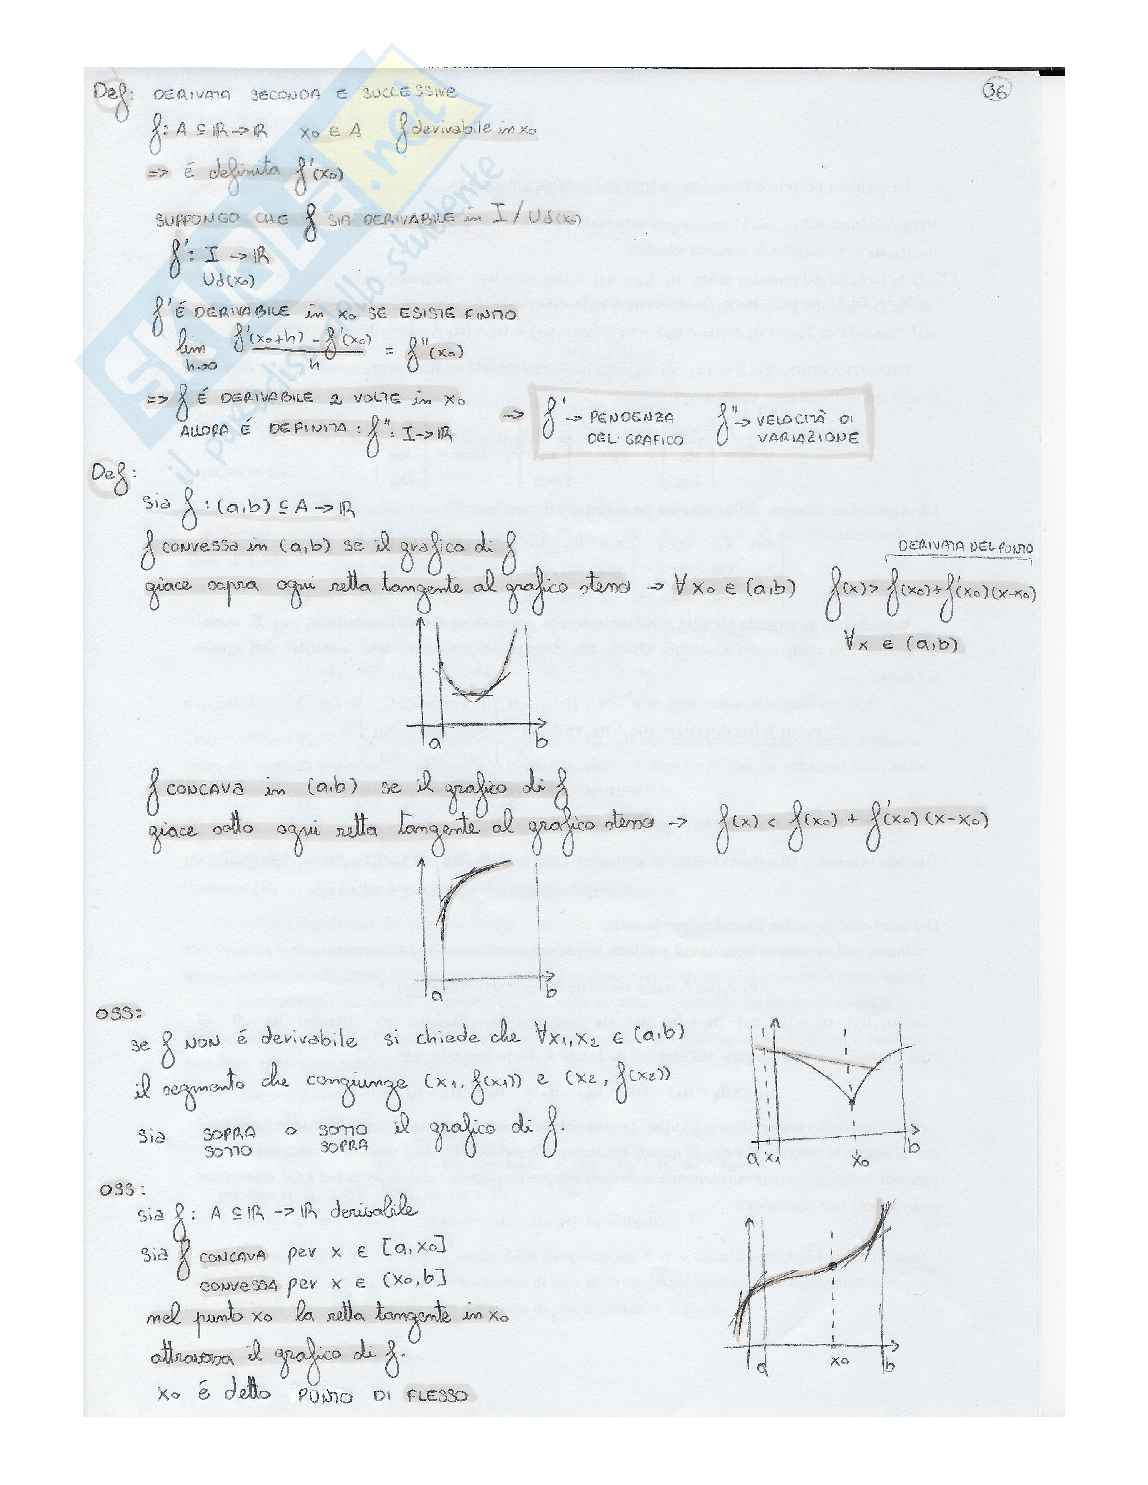 Def: DERIVATA SECONDA E SUCCESSIVE
36
f: A ⊆ IR -> IR x0 ∈ A f derivabile in x0
=> É definita f'(x0)
SUPPONGO CHE f SIA DERIVABILE in I / Ud(x0)
f': I -> IR
Ud(x0)
f' É DERIVABILE in x0 SE ESISTE FINITO
lim h->0 f'(x0+h) - f'(x0) / h = f''(x0)
=> f É DERIVABILE 2 VOLTE in x0
ALLORA É DEFINITA: f'': I -> IR
-> f' -> PENDENZA DEL GRAFICO f'' -> VELOCITÀ DI VARIAZIONE
Def:
sia f: (a,b) ⊆ A -> IR
f CONVESSA in (a,b) se il grafico di f
DERIVATA DEL PUNTO
giace sopra ogni retta tangente al grafico stesso -> ∀ x0 ∈ (a,b) f(x) > f(x0) + f'(x0)(x-x0)
∀x ∈ (a,b)
a b
f CONCAVA in (a,b) se il grafico di f
giace sotto ogni retta tangente al grafico stesso -> f(x) < f(x0) + f'(x0)(x-x0)
a b
OSS:
se f NON é derivabile si chiede che ∀x1,x2 ∈ (a,b)
il segmento che congiunge (x1, f(x1)) e (x2, f(x2))
sia SOPRA o SOTTO il grafico di f.
SOTTO SOPRA
a x1 x0 b
OSS:
sia f: A ⊆ IR -> IR derivabile
sia f CONCAVA per x ∈ [a,x0]
CONVESSA per x ∈ (x0,b]
nel punto x0 la retta tangente in x0
attraversa il grafico di f.
x0 é detto PUNTO DI FLESSO
a x0 b
SKUOLA.net
il paradiso dello studente